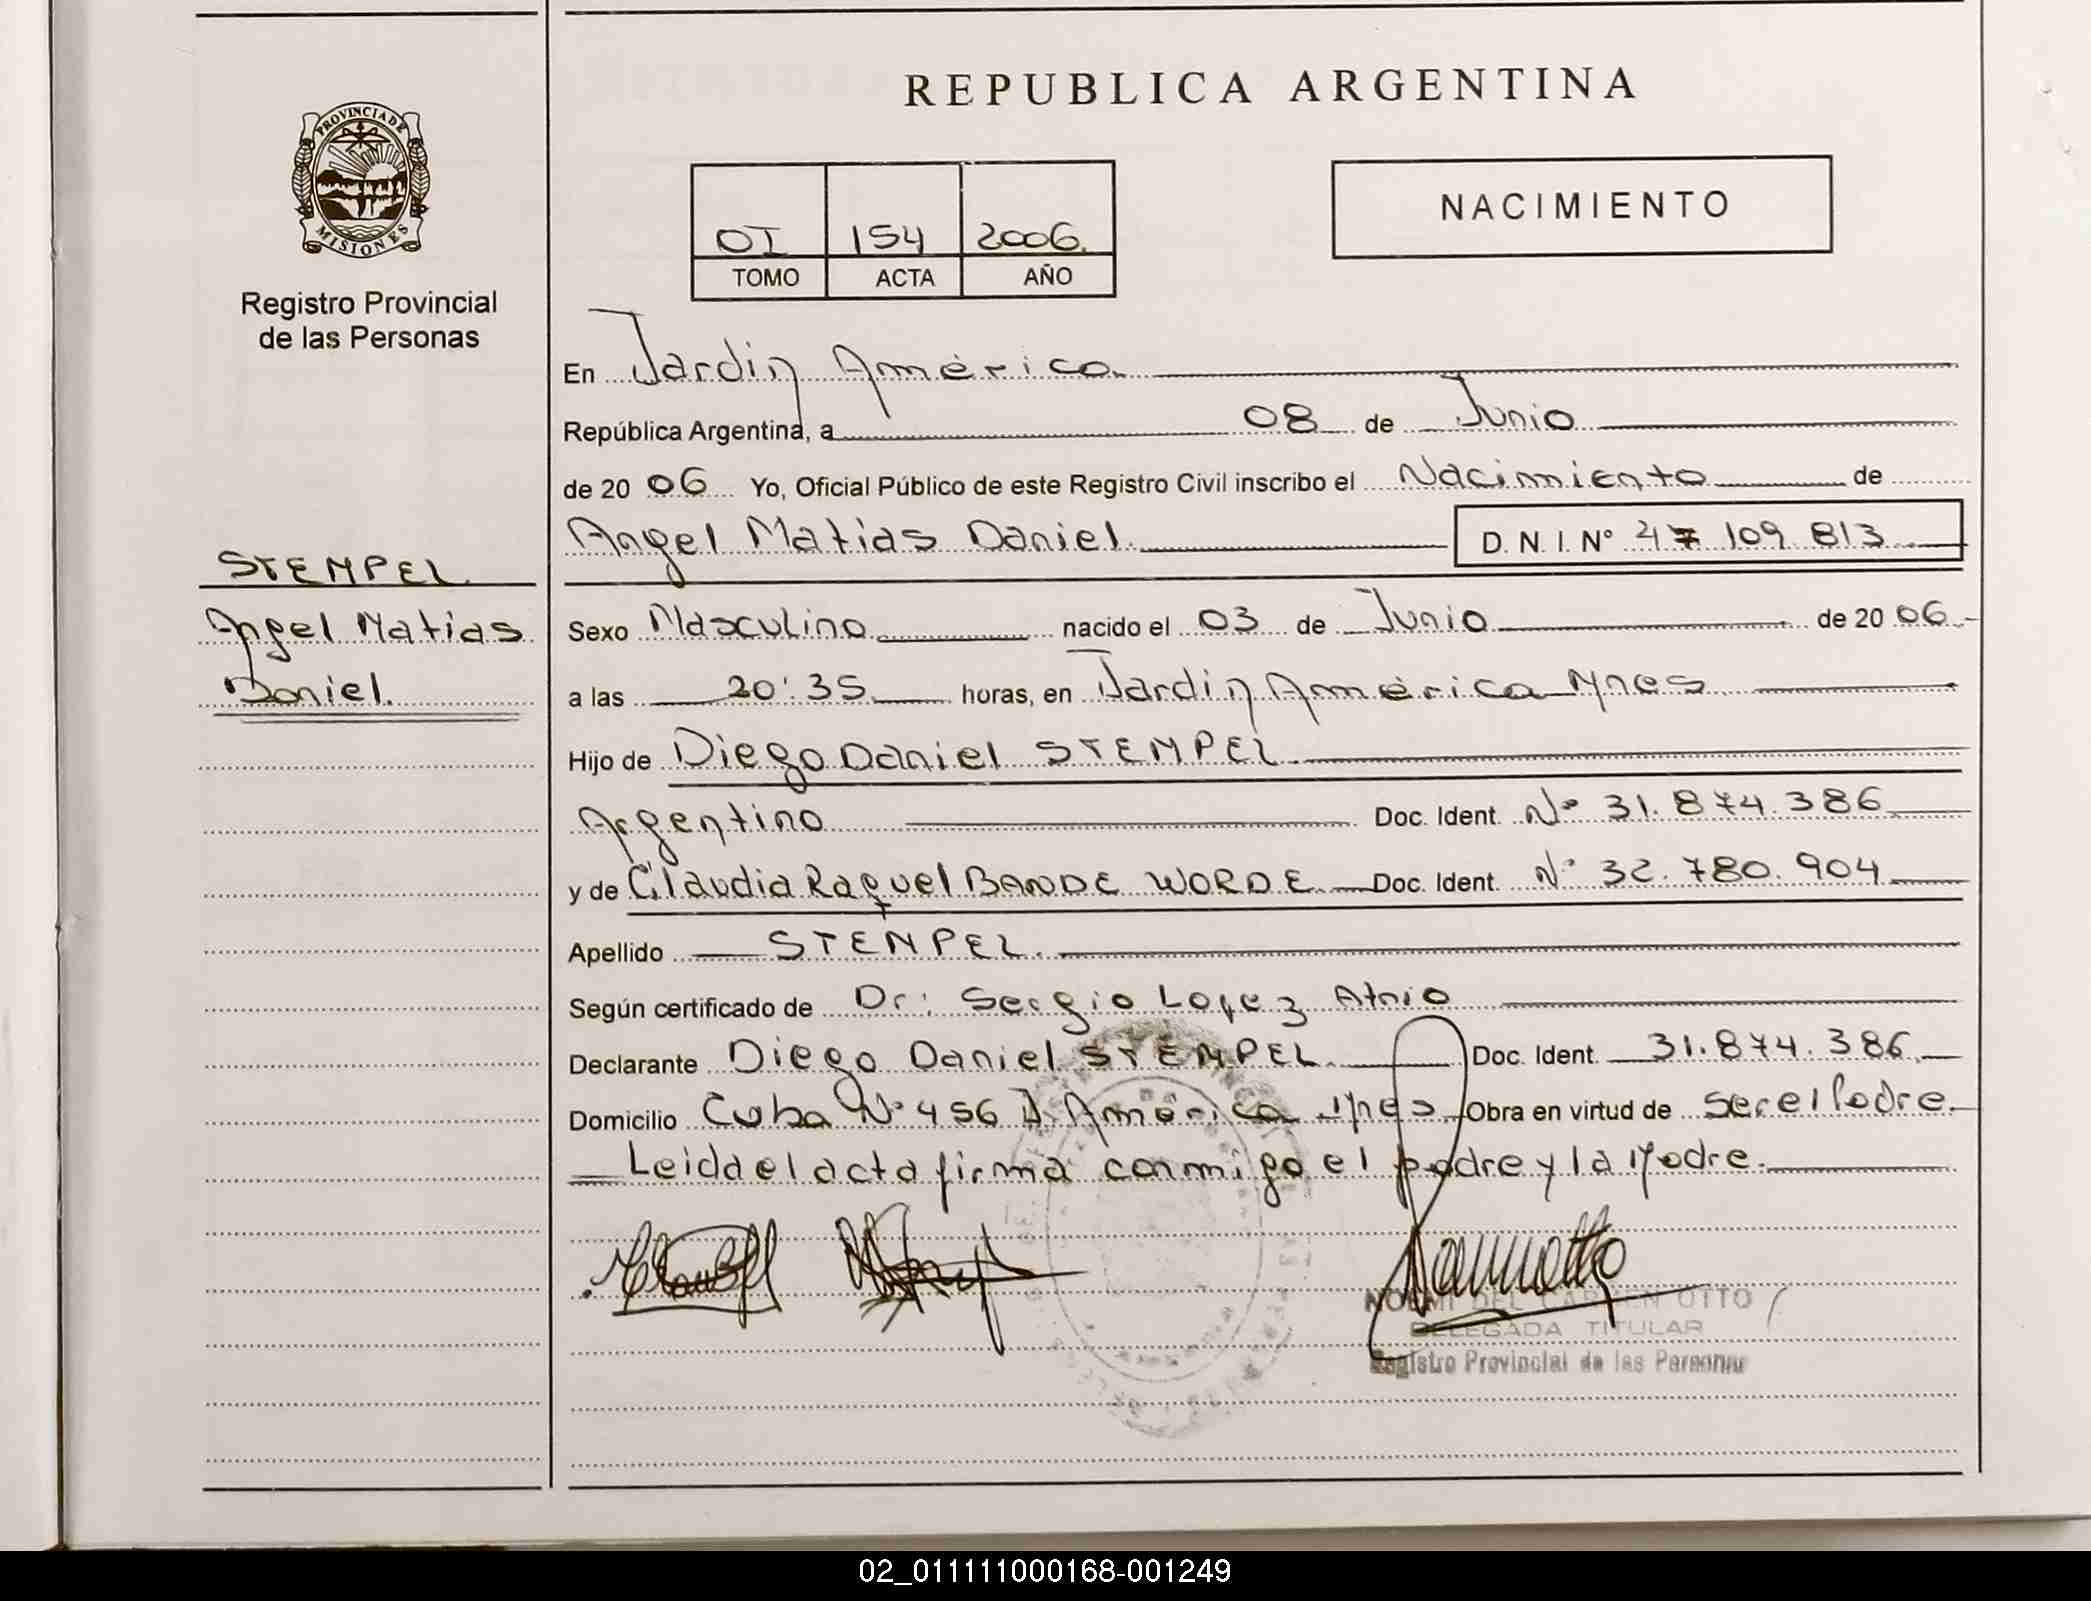 REPUBLICA ARGENTINA
PROVINCIA DE
MISIONES
Registro Provincial
de las Personas
OI 154 2006.
TOMO ACTA AÑO
NACIMIENTO
En Jardin América
República Argentina, a 08 de Junio
de 20 06 Yo, Oficial Público de este Registro Civil inscribo el Nacimiento de
Angel Matias Daniel D. N. I. Nº 47 109 813
STEMPEL
Angel Matias
Daniel.
Sexo Masculino nacido el 03 de Junio de 20 06
a las 20:35 horas, en Jardin América Mnes
Hijo de Diego Daniel STEMPEL
Argentino Doc. Ident. Nº 31.874.386
y de Claudia Raquel BANDE WORDE Doc. Ident. Nº 32.780.904
Apellido STEMPEL.
Según certificado de Dr: Sergio Lopez Atrio
Declarante Diego Daniel STEMPEL. Doc. Ident. 31.874.386
Domicilio Cuba Nº 456 J. América Mnes Obra en virtud de ser el Padre.
Leida el acta firma conmigo el padre y la Madre.
NOEMI DEL CARMEN OTTO
DELEGADA TITULAR
Registro Provincial de las Personas
02_011111000168-001249